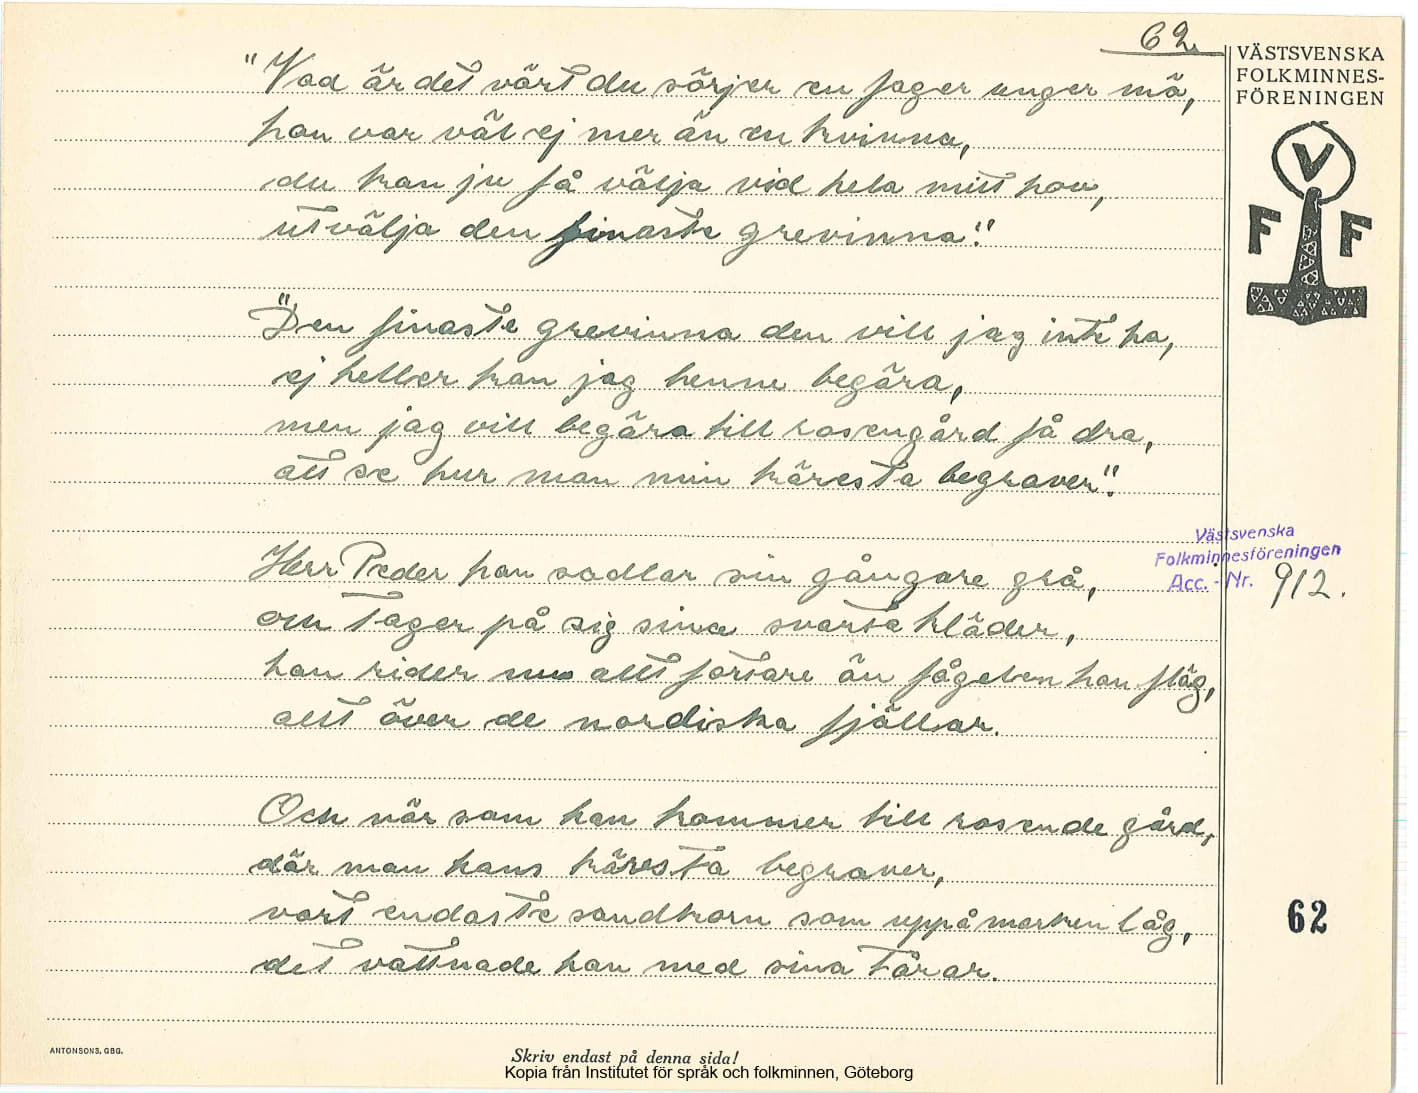 62.
VÄSTSVENSKA
FOLKMINNES-
FÖRENINGEN
V
F F
"Vad är det värt du sörjer en fager unger mö,
hon var väl ej mer än en kvinna,
du kan ju få välja vid hela mitt hov,
utvälja den finaste grevinna."
"Den finaste grevinna den vill jag inte ha,
ej heller kan jag henne begära,
men jag vill begära till rosengård få dra,
att se hur man min käresta begraver."
Västsvenska
Folkminnesföreningen
Acc. - Nr. 912.
Herr Peder han sadlar sin gångare grå,
och tager på sig sina svarta kläder,
han rider nu allt fortare än fågelen han flög,
allt över de nordiska fjällar.
Och när som han kommer till rosende gård,
där man hans käresta begraver,
vart endaste sandkorn som uppå marken låg,
det vattnade han med sina tårar.
62
ANTONSONS, GBG.
Skriv endast på denna sida!
Kopia från Institutet för språk och folkminnen, Göteborg